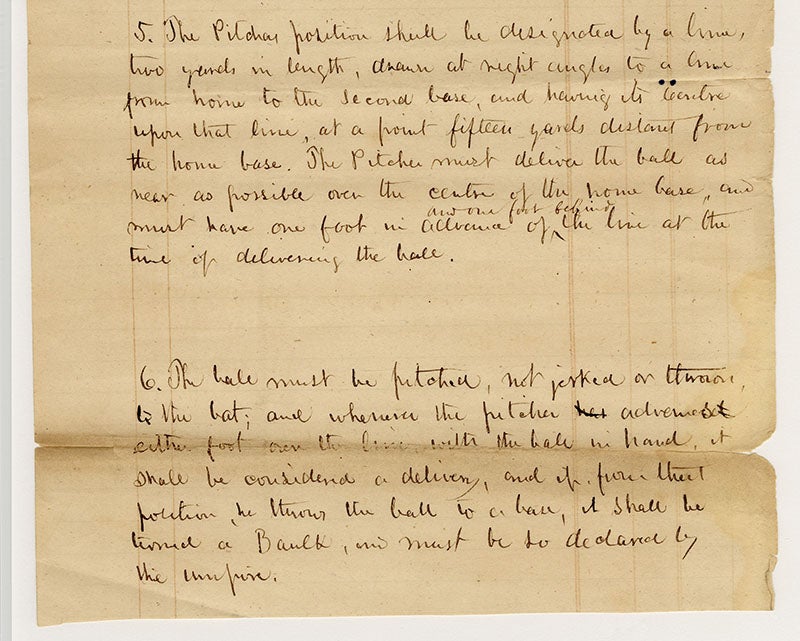 5. The Pitchers position shall be designated by a line,
two yards in length, drawn at right angles to a line
from home to the second base, and having its centre
upon that line, at a point fifteen yards distant from
the home base. The Pitcher must deliver the ball as
near as possible over the centre of the home base, and
and one foot behind
must have one foot in advance of the line at the
time of delivering the ball.
6. The ball must be pitched, not jerked or thrown,
to the bat; and whenever the pitcher has advances
either foot over the line, with the ball in hand, it
shall be considered a delivery, and if from that
position, he throws the ball to a base, it shall be
termed a Baulk, and must be so declared by
the umpire.